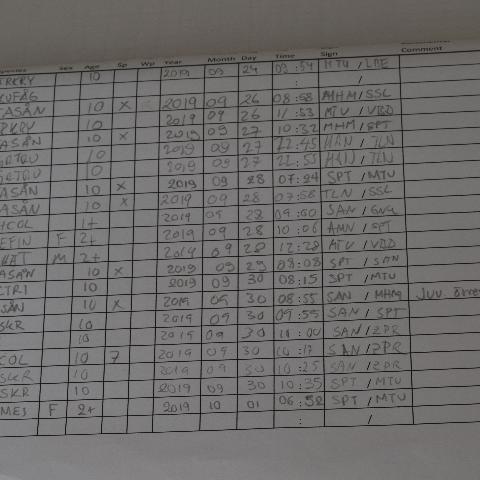 Species Sex Age Sp Wp Year Month Day Time Sign Comment
10 2019 09 24 03:54 MTU / LBE
: /
ASÅN 10 X 2019 09 26 08:58 MHM / SSL
2019 09 26 11:53 MTU / VBD
ASÅN 10 X 2019 09 27 10:32 MHM / SPT
10 2019 09 27 22:45 HAN / TLN
10 2019 09 27 22:55 HAN / TLN
ASÅN 10 X 2019 09 28 07:24 SPT / MTU
ASÅN 10 X 2019 09 28 07:58 TLN / SSL
HCOL 1+ 2019 09 28 09:50 SAN /
EFIN F 2+ 2019 09 28 10:06 AMN / SPT
M 2+ 2019 09 28 12:28 MTU / VBD
ASÅN 10 X 2019 09 29 08:08 SPT / SAN
CTRI 10 2019 09 30 08:15 SPT / MTU
SÅN 10 X 2019 09 30 08:55 SAN / MHM Juv.
SKR 10 2019 09 30 09:55 SAN / SPT
10 2019 09 30 11:00 SAN / ZPR
COL 10 7 2019 09 30 10:17 SAN / ZPR
SKR 10 2019 09 30 10:25 SAN / ZPR
SKR 10 2019 09 30 10:35 SPT / MTU
MES F 2+ 2019 10 01 06:58 SPT / MTU
: /